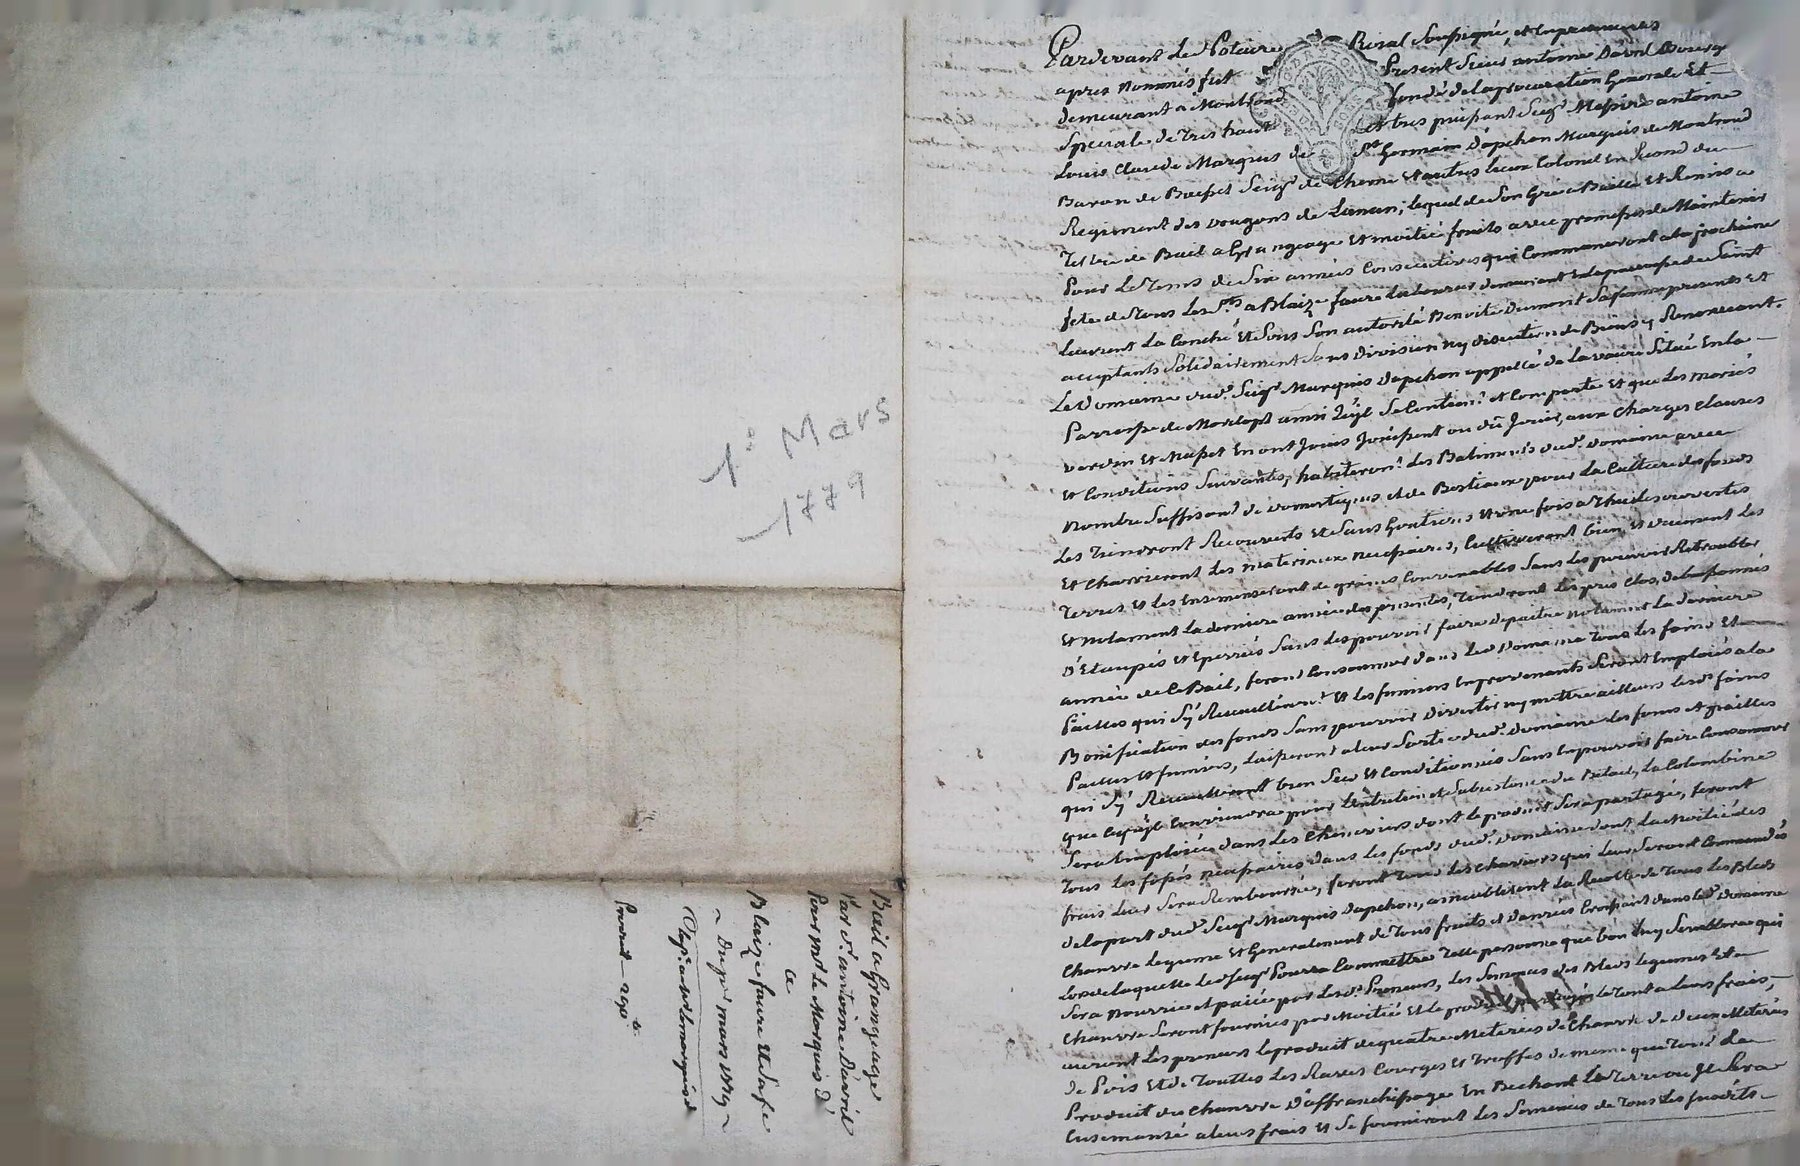 1er Mars
1779
Bail a Grangeage
Par Sr. antoine Davril
Pour Mr. le Marquis d'
a
Blaize faure et sa fe
Du 1er mars 1779
Pardevant Le Notaire Roial Soussigné, et en presence des
apres nommés fut Present Sieur antoine Davril Bourg
demeurant a Montrond fondé de la procuration Generale Et
Speciale de Tres haut et tres puissant Seigr Messire antoine
Louis Claude Marquis de St Germain Dapchon Marquis de Montrond
Baron de Boisset Seigr de Cherne et autres Lieux Colonel En Second du
Regiment des Dragons de Lanan, lequel de Son Gré a Baillé Et Remis a
Titre de Bail a Grangeage Et moitié fruits avec promesse de Maintenir
Pour Le Tems de Six années Consecutives qui Commenceront a la prochaine
fete de Tous Les Sts a Blaize faure laboureur demeurant En la paroisse de Saint
Laurent La Conche Et Sous Son autorité Benoite Dumont Sa femme presents Et
acceptants Solidairement Sans Division ny discution de Biens y Renonceant
Le Domaine dud. Seigr Marquis Dapchon appellé de La vaure Situé En la
Parroisse de Marclopt ainsi qu'il Se Contient et Comporte Et que Les mariés
Verdin Et Masset En ont Joui Jouissent ou dû Jouir, aux Charges Clauses
Et Conditions Suivantes, habiteront Les Batiments dud. Domaine avec
Nombre Suffisant de Domestiques et de Bestiaux pour La Culture des fonds
Les Tiendront Recouverts Et Sans Goutieres Et une fois a Thuiles ouvertes
Et Charrieront Les materiaux necessaires, Cultiveront bien et duement Les
Terres Et Les Ensemenseront de grains Convenables Sans Les pouvoir Retroubler
Et notament La derniere année des presentes, Tiendront Les prés Clos, debuissonnés
D'Etaupés Et Eperriés Sans Les pouvoir faire depaitre notament La derniere
année de Ce Bail, feront Consommer dans Led Domaine Tous les foins Et
Pailles qui S'y Recuilleront Et Les fumiers En provenants Seront Emploiés a la
Bonification des fonds Sans pouvoir Divertir ny mettre ailleurs lesd foins
Pailles Et fumiers, Laisseront a leur Sortie dud. Domaine Les foins Et pailles
qui S'y Recuilleront bien Sec Et Conditionnés Sans En pouvoir faire Consommer
que Ce qu'il Conviendra pour L'entretien et Subsistance du Betail, La Colombine
Sera Emploiée dans Les Cheneviers dont le produit Sera partagé, feront
Tous les fossés necessaires dans les fonds dud. Domaine dont La Moitié des
frais Leur Sera Remboursée, feront Tous Les Charrois qui Leur Seront Commandés
de la part dud Seigr Marquis Dapchon, ameubleront La Recolte de Tous Les Bleds
Chanvre Legume Et Generalement de Tous fruits et danrées Croissant dans led Domaine
Lors de laquelle led Seigr Pourra Commettre Telle personne que bon luy Semblera qui
Sera nourrie et paiée par Lesd. Preneurs, Les Semences des Bleds legumes Et
Chanvre Seront fournies par Moitié Et le produit partagé Le Tout a Leurs frais,
auront Les preneurs le produit de quatre Meterées de Chanvre de deux Meterées
de Pois Et de Touttes Les Raves Courges Et Truffes de meme que Tout Le
Produit du Chanvre D'affranchissage En Bechant La Terre ou Il Sera
Ensemansé a leurs frais Et Se fourniront Les Semences de Tous Les fruits